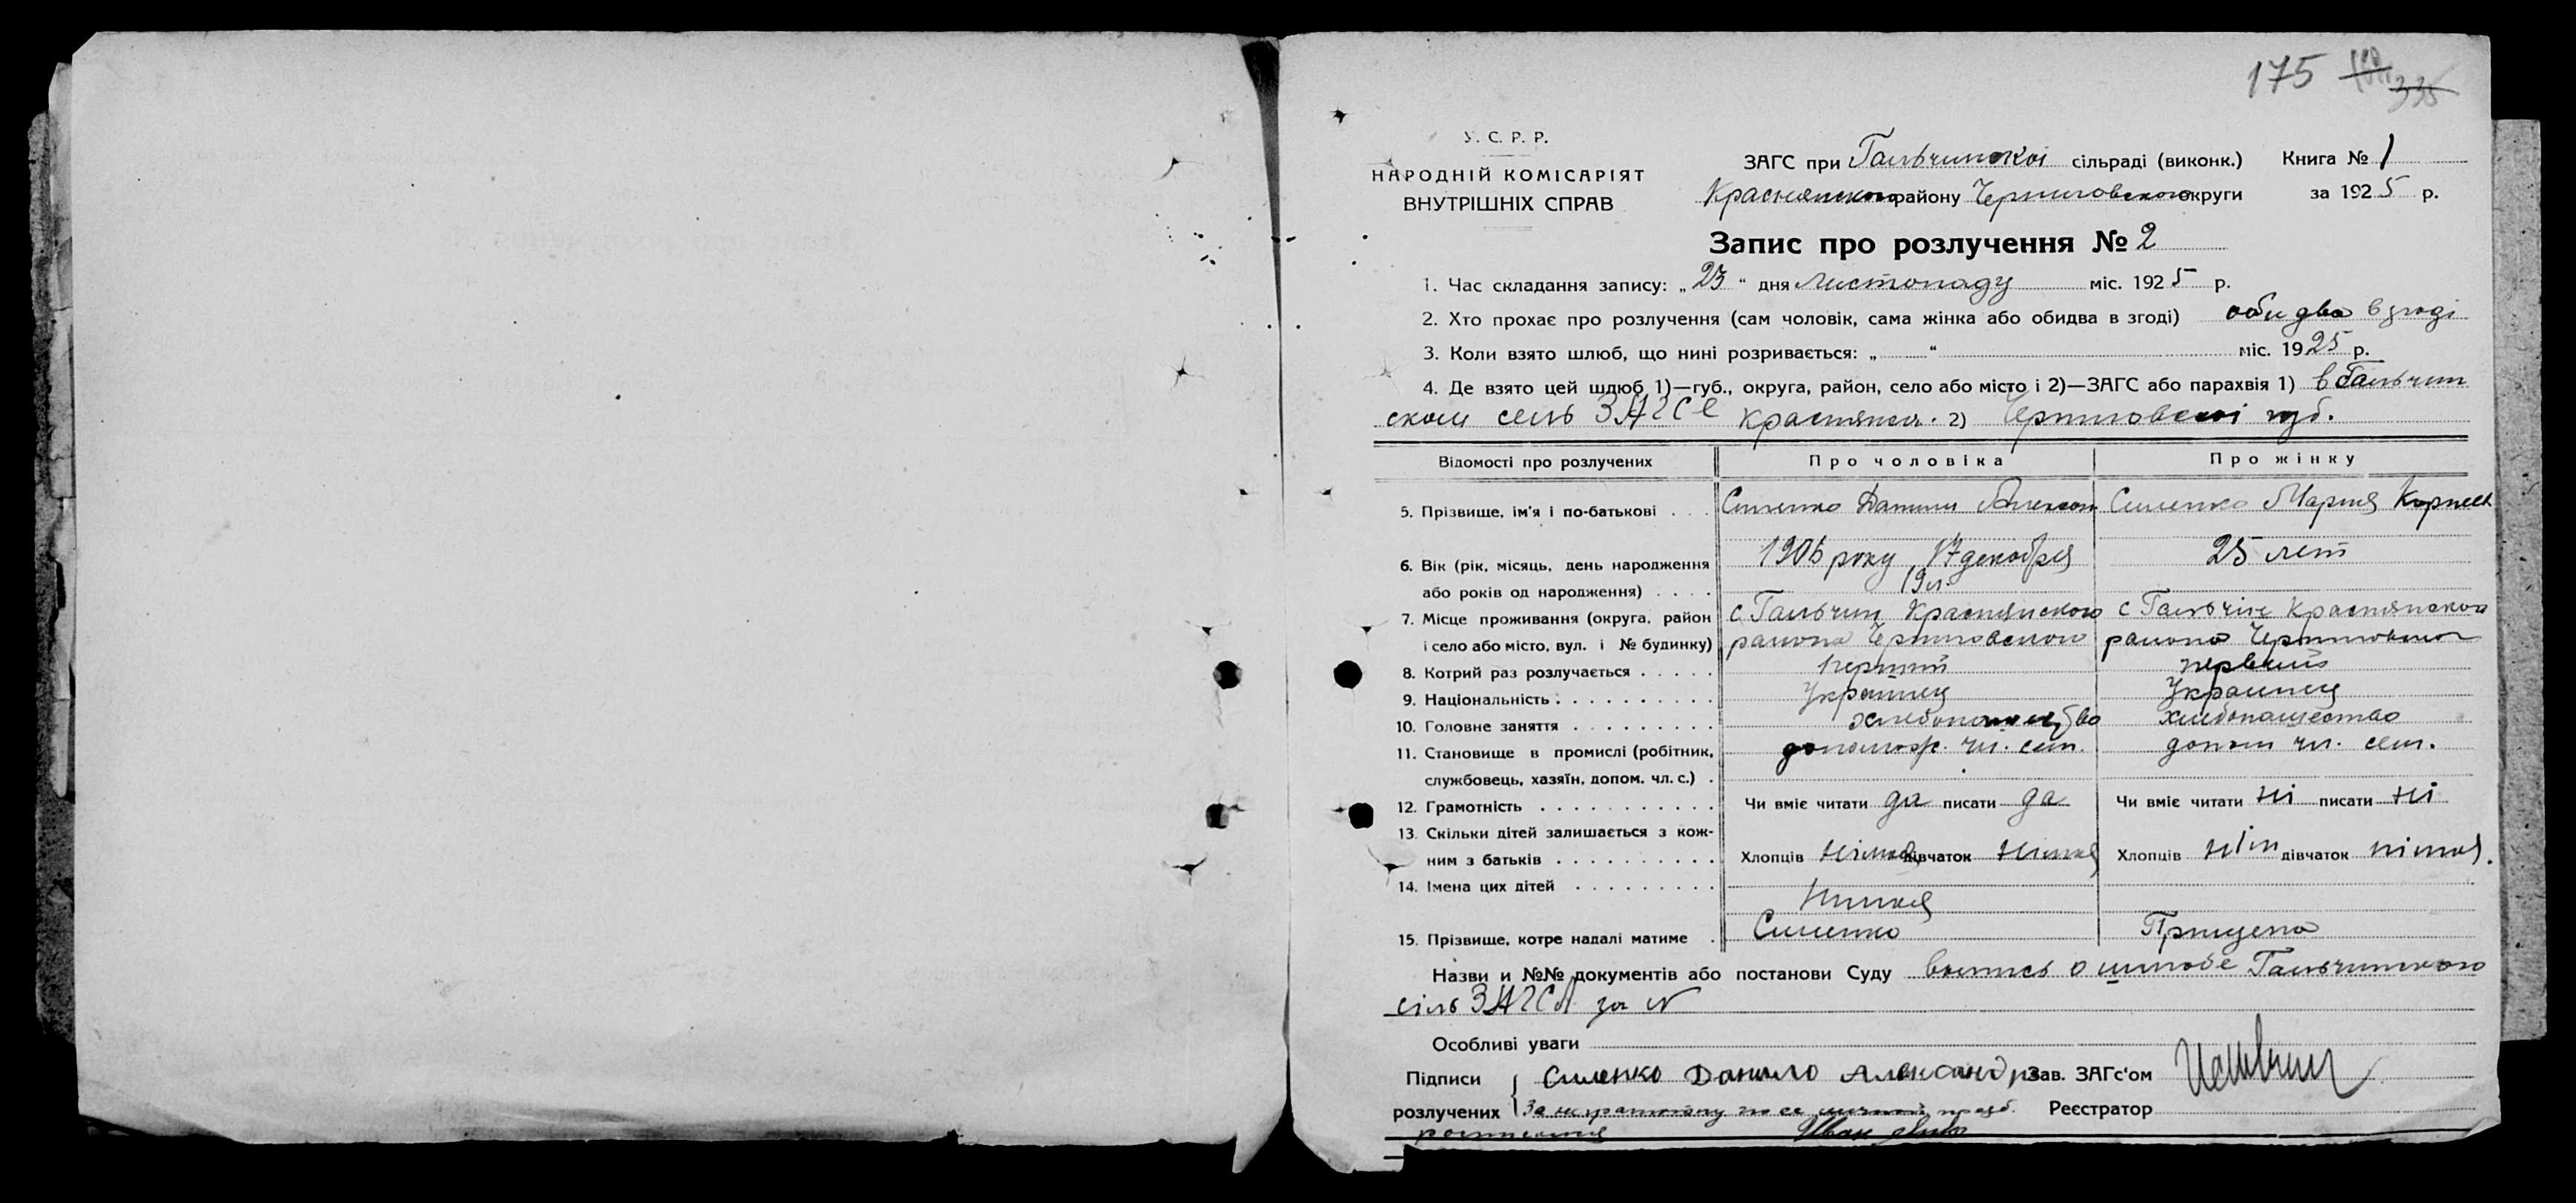 175
335
У. С. Р. Р.
НАРОДНІЙ КОМІСАРІЯТ
ВНУТРІШНІХ СПРАВ
ЗАГС при Гальчинской сільраді (виконк.) Книга № 1
Краснянского району Черниговского округи за 1925 р.
Запис про розлучення № 2
1. Час складання запису: „23“ дня листопаду міс. 1925 р.
2. Хто прохає про розлучення (сам чоловік, сама жінка або обидва в згоді) обидва в згоді
3. Коли взято шлюб, що нині розривається: „ “ міс. 1925 р.
4. Де взято цей шлюб 1)—губ., округа, район, село або місто і 2)—ЗАГС або парахвія 1) в Гальчин
ском сель ЗАГСе 2) губ.
Відомості про розлучених Про чоловіка Про жінку
5. Прізвище, ім'я і по-батькові . . . Силенко Данило Александ Силенко Мария Корнеев
6. Вік (рік, місяць, день народження 1906 року 17 декабря 25 лет
або років од народження) . . . . 19 л.
7. Місце проживання (округа, район с Гальчин Краснянского с Гальчин Краснянского
і село або місто, вул. і № будинку) района Черниговского района
8. Котрий раз розлучається . . . . . первий
9. Національність . . . . . . . . . . Украинец Украинец
10. Головне заняття . . . . . . . . . хлебопашество хлебопашество
11. Становище в промислі (робітник, допомож. чл. сем. допом чл. сем.
службовець, хазяїн, допом. чл. с.) .
12. Грамотність . . . . . . . . . . . Чи вміє читати да писати да Чи вміє читати ні писати ні
13. Скільки дітей залишається з кож-
ним з батьків . . . . . . . . . . Хлопців дівчаток Хлопців дівчаток
14. Імена цих дітей . . . . . . . . .
15. Прізвище, котре надалі матиме . Силенко Прищепа
Назви и №№ документів або постанови Суду Гальчинского
сіль ЗАГСА за №
Особливі уваги
Підписи Силенко Данило Александр Зав. ЗАГс'ом
розлучених За неграмотну по ее личной Реєстратор
Иван